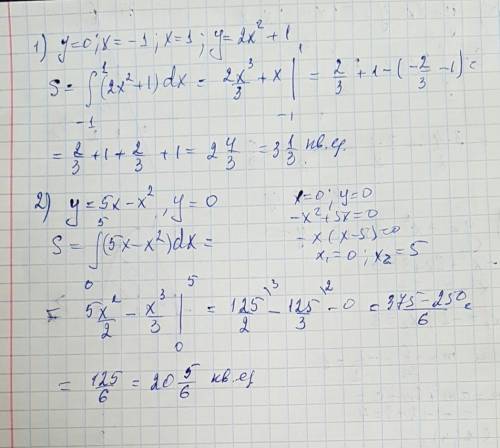 1) y=0; x=-1; x=1; y=2x²+1
S= ∫₋₁¹ (2x²+1)dx = 2x³/3 + x |₋₁¹ = 2/3 + 1 - (-2/3 - 1) =
= 2/3 + 1 + 2/3 + 1 = 2 4/3 = 3 1/3 кв.ед.
2) y=5x-x², y=0
x=0; y=0
-x²+5x=0
-x(x-5)=0
x₁=0; x₂=5
S= ∫₀⁵ (5x-x²)dx =
= 5x²/2 - x³/3 |₀⁵ = 125/2 \3 - 125/3 \2 - 0 = 375-250/6 =
= 125/6 = 20 5/6 кв.ед